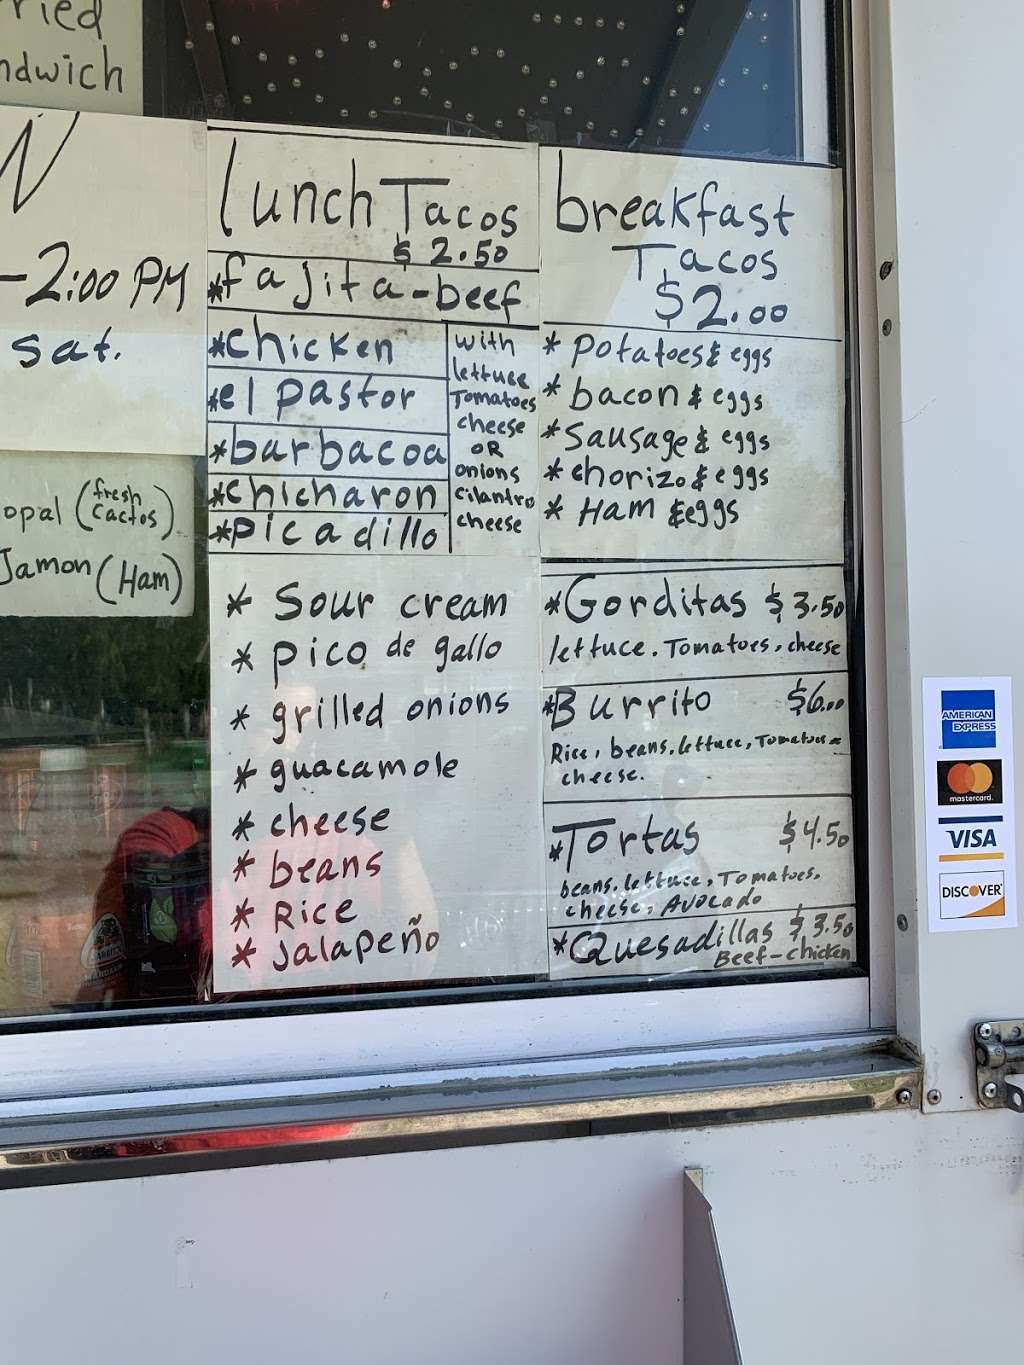 ried
ndwich
N
-2:00 PM
sat.
opal (fresh
cactos)
Jamon (Ham)
lunch Tacos
$ 2.50
*fajita-beef
*chicken
*el pastor
*barbacoa
*chicharon
*picadillo
with
lettuce
Tomatoes
cheese
OR
onions
cilantro
cheese
* Sour cream
* pico de gallo
* grilled onions
* guacamole
* cheese
* beans
* Rice
* Jalapeño
breakfast
Tacos
$2.00
* potatoes & eggs
* bacon & eggs
* Sausage & eggs
* chorizo & eggs
* Ham & eggs
*Gorditas $ 3.50
lettuce. Tomatoes, cheese
*Burrito $6.00
Rice, beans, lettuce, Tomatoes
cheese.
*Tortas $4.50
beans, lettuce, Tomatoes,
cheese, Avocado
*Quesadillas $ 3.50
Beef-chicken
AMERICAN
EXPRESS
mastercard.
VISA
DISCOVER